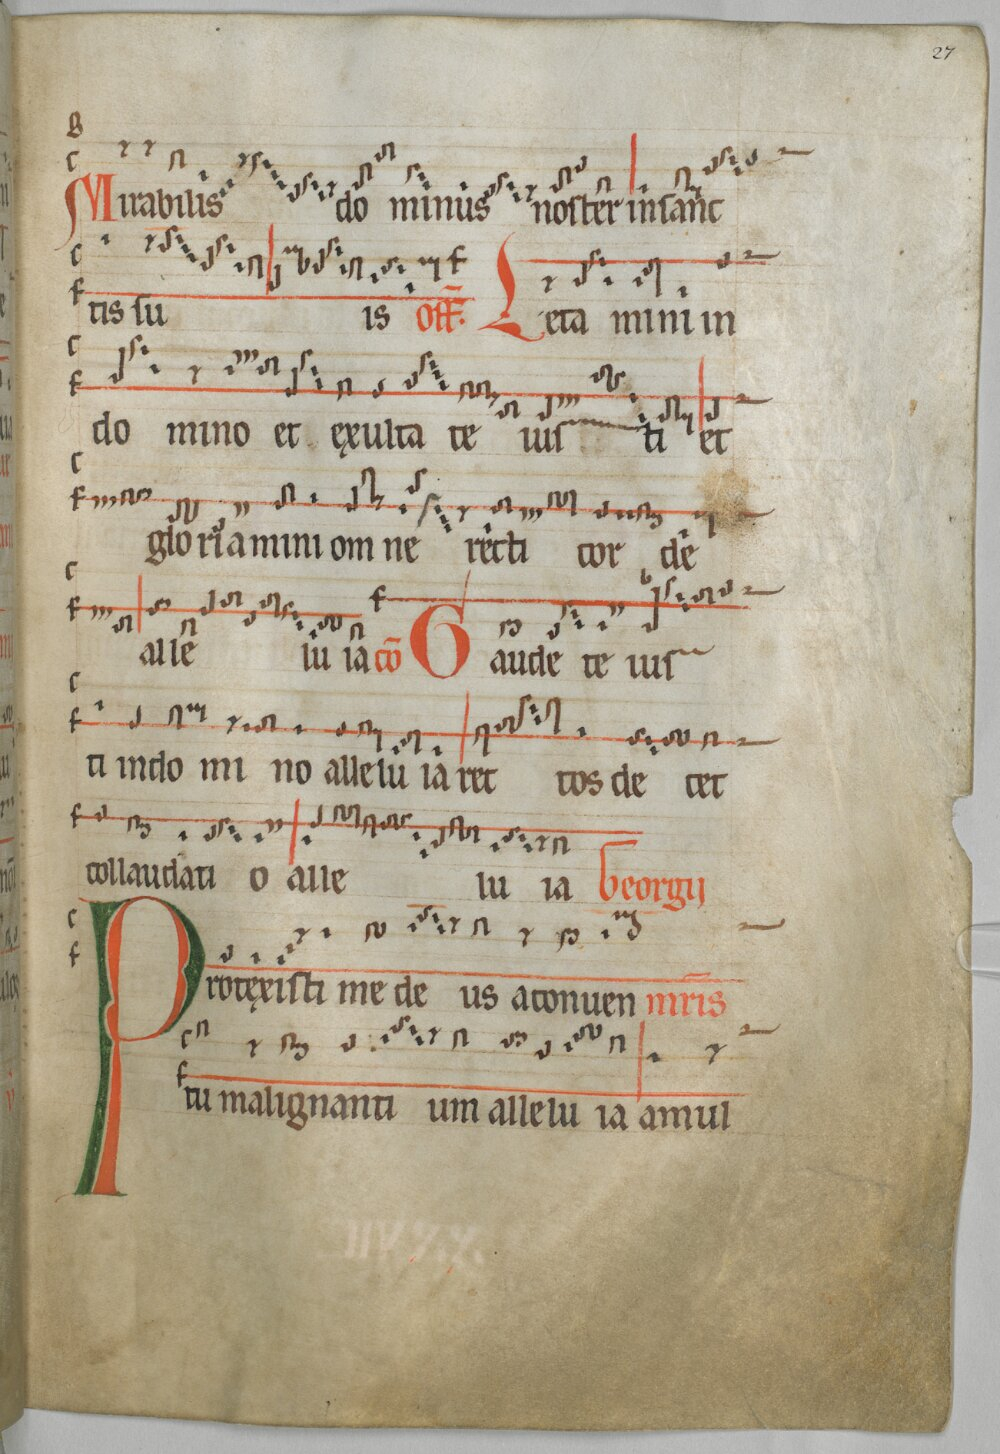 27
Mirabilis do minus noster in sanc
tis su is off. Leta mini in
do mino et exulta te ius ti et
glo ria mini om ne recti cor de
alle lu ia co Gaude te ius
ti in do mi no alle lu ia rec tos de cet
collaudati o alle lu ia Georgij
Protexisti me de us a conuen mris
tu malignanti um alle lu ia a mul